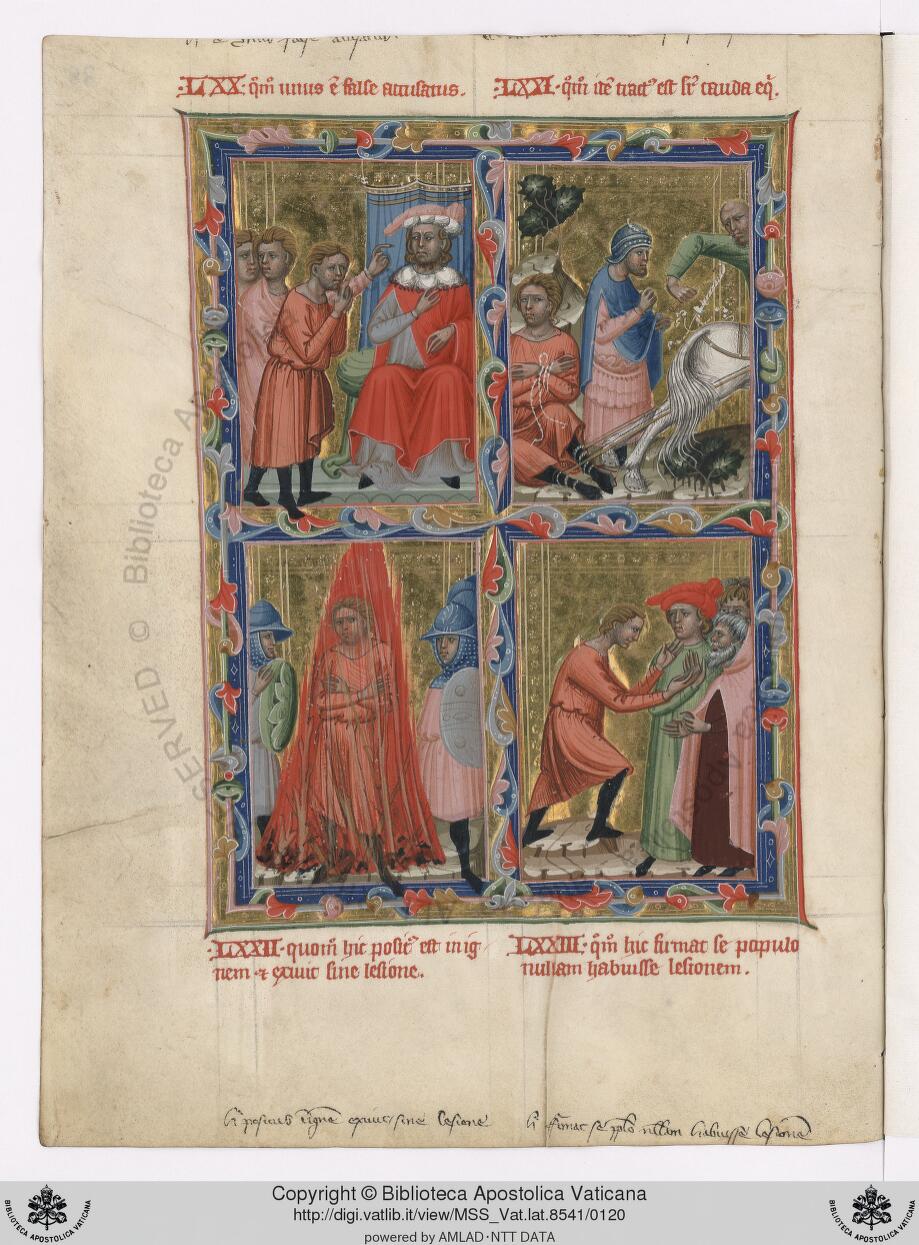 LXX · q̄m unus ē false accusatus.
LXXI · q̄m itē tract᷒ est sr̄ cauda eq̄.
LXXII · quom̄ hic posit᷒ est in ig
nem ⁊ exivit sine lesione.
LXXIII · q̄m hic firmat se populo
nullam habuisse lesionem.
posit᷒ ignē exivit sine lesione
firmat se pplō nullam habuisse lesionē
RESERVED © Biblioteca
Copyright © Biblioteca Apostolica Vaticana
http://digi.vatlib.it/view/MSS_Vat.lat.8541/0120
powered by AMLAD·NTT DATA
BIBLIOTECA APOSTOLICA VATICANA
BIBLIOTECA APOSTOLICA VATICANA